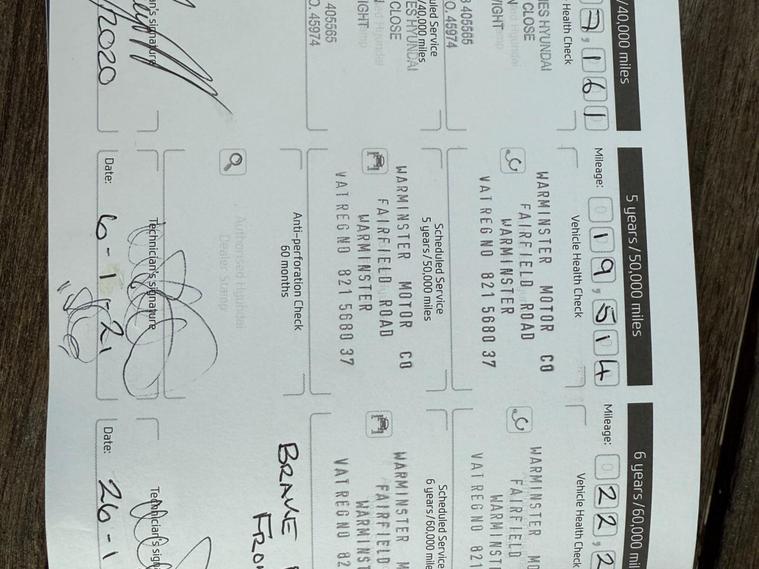 /40,000 miles
7,161
Health Check
ES HYUNDAI
CLOSE
405565
O. 45974
duled Service
/40,000 miles
ES HYUNDAI
CLOSE
405565
O. 45974
an's signature
/2020
5 years/50,000 miles
Mileage: 019,514
Vehicle Health Check
WARMINSTER MOTOR CO
FAIRFIELD ROAD
WARMINSTER
VAT REG NO 821 5680 37
Scheduled Service
5 years/50,000 miles
WARMINSTER MOTOR CO
FAIRFIELD ROAD
WARMINSTER
VAT REG NO 821 5680 37
Anti-perforation Check
60 months
Authorised Hyundai
Dealer Stamp
Technician's signature
Date: 6-1-21
6 years/60,000 mil
Mileage: 022,2
Vehicle Health Check
WARMINSTER MO
FAIRFIELD
WARMINST
VAT REG NO 821
Scheduled Service
6 years/60,000 mile
WARMINSTER M
FAIRFIELD
WARMINST
VAT REG NO 82
BRAKE
FRO
Technician's sign
Date: 26-1